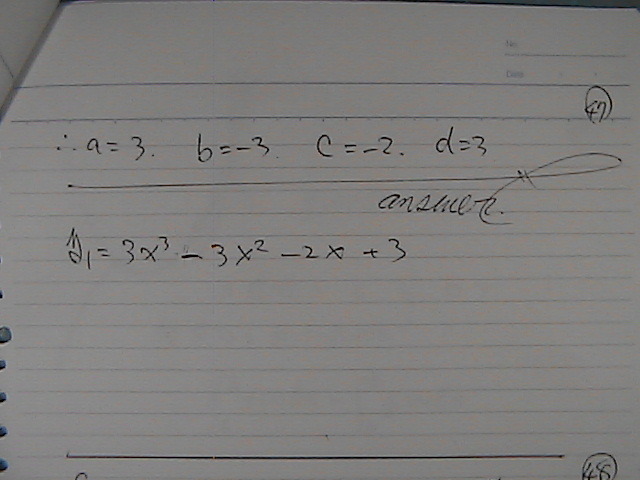 No.
Date
47
∴ a = 3. b = -3 c = -2. d = 3
answer.
y₁ = 3x³ - 3x² - 2x + 3
48